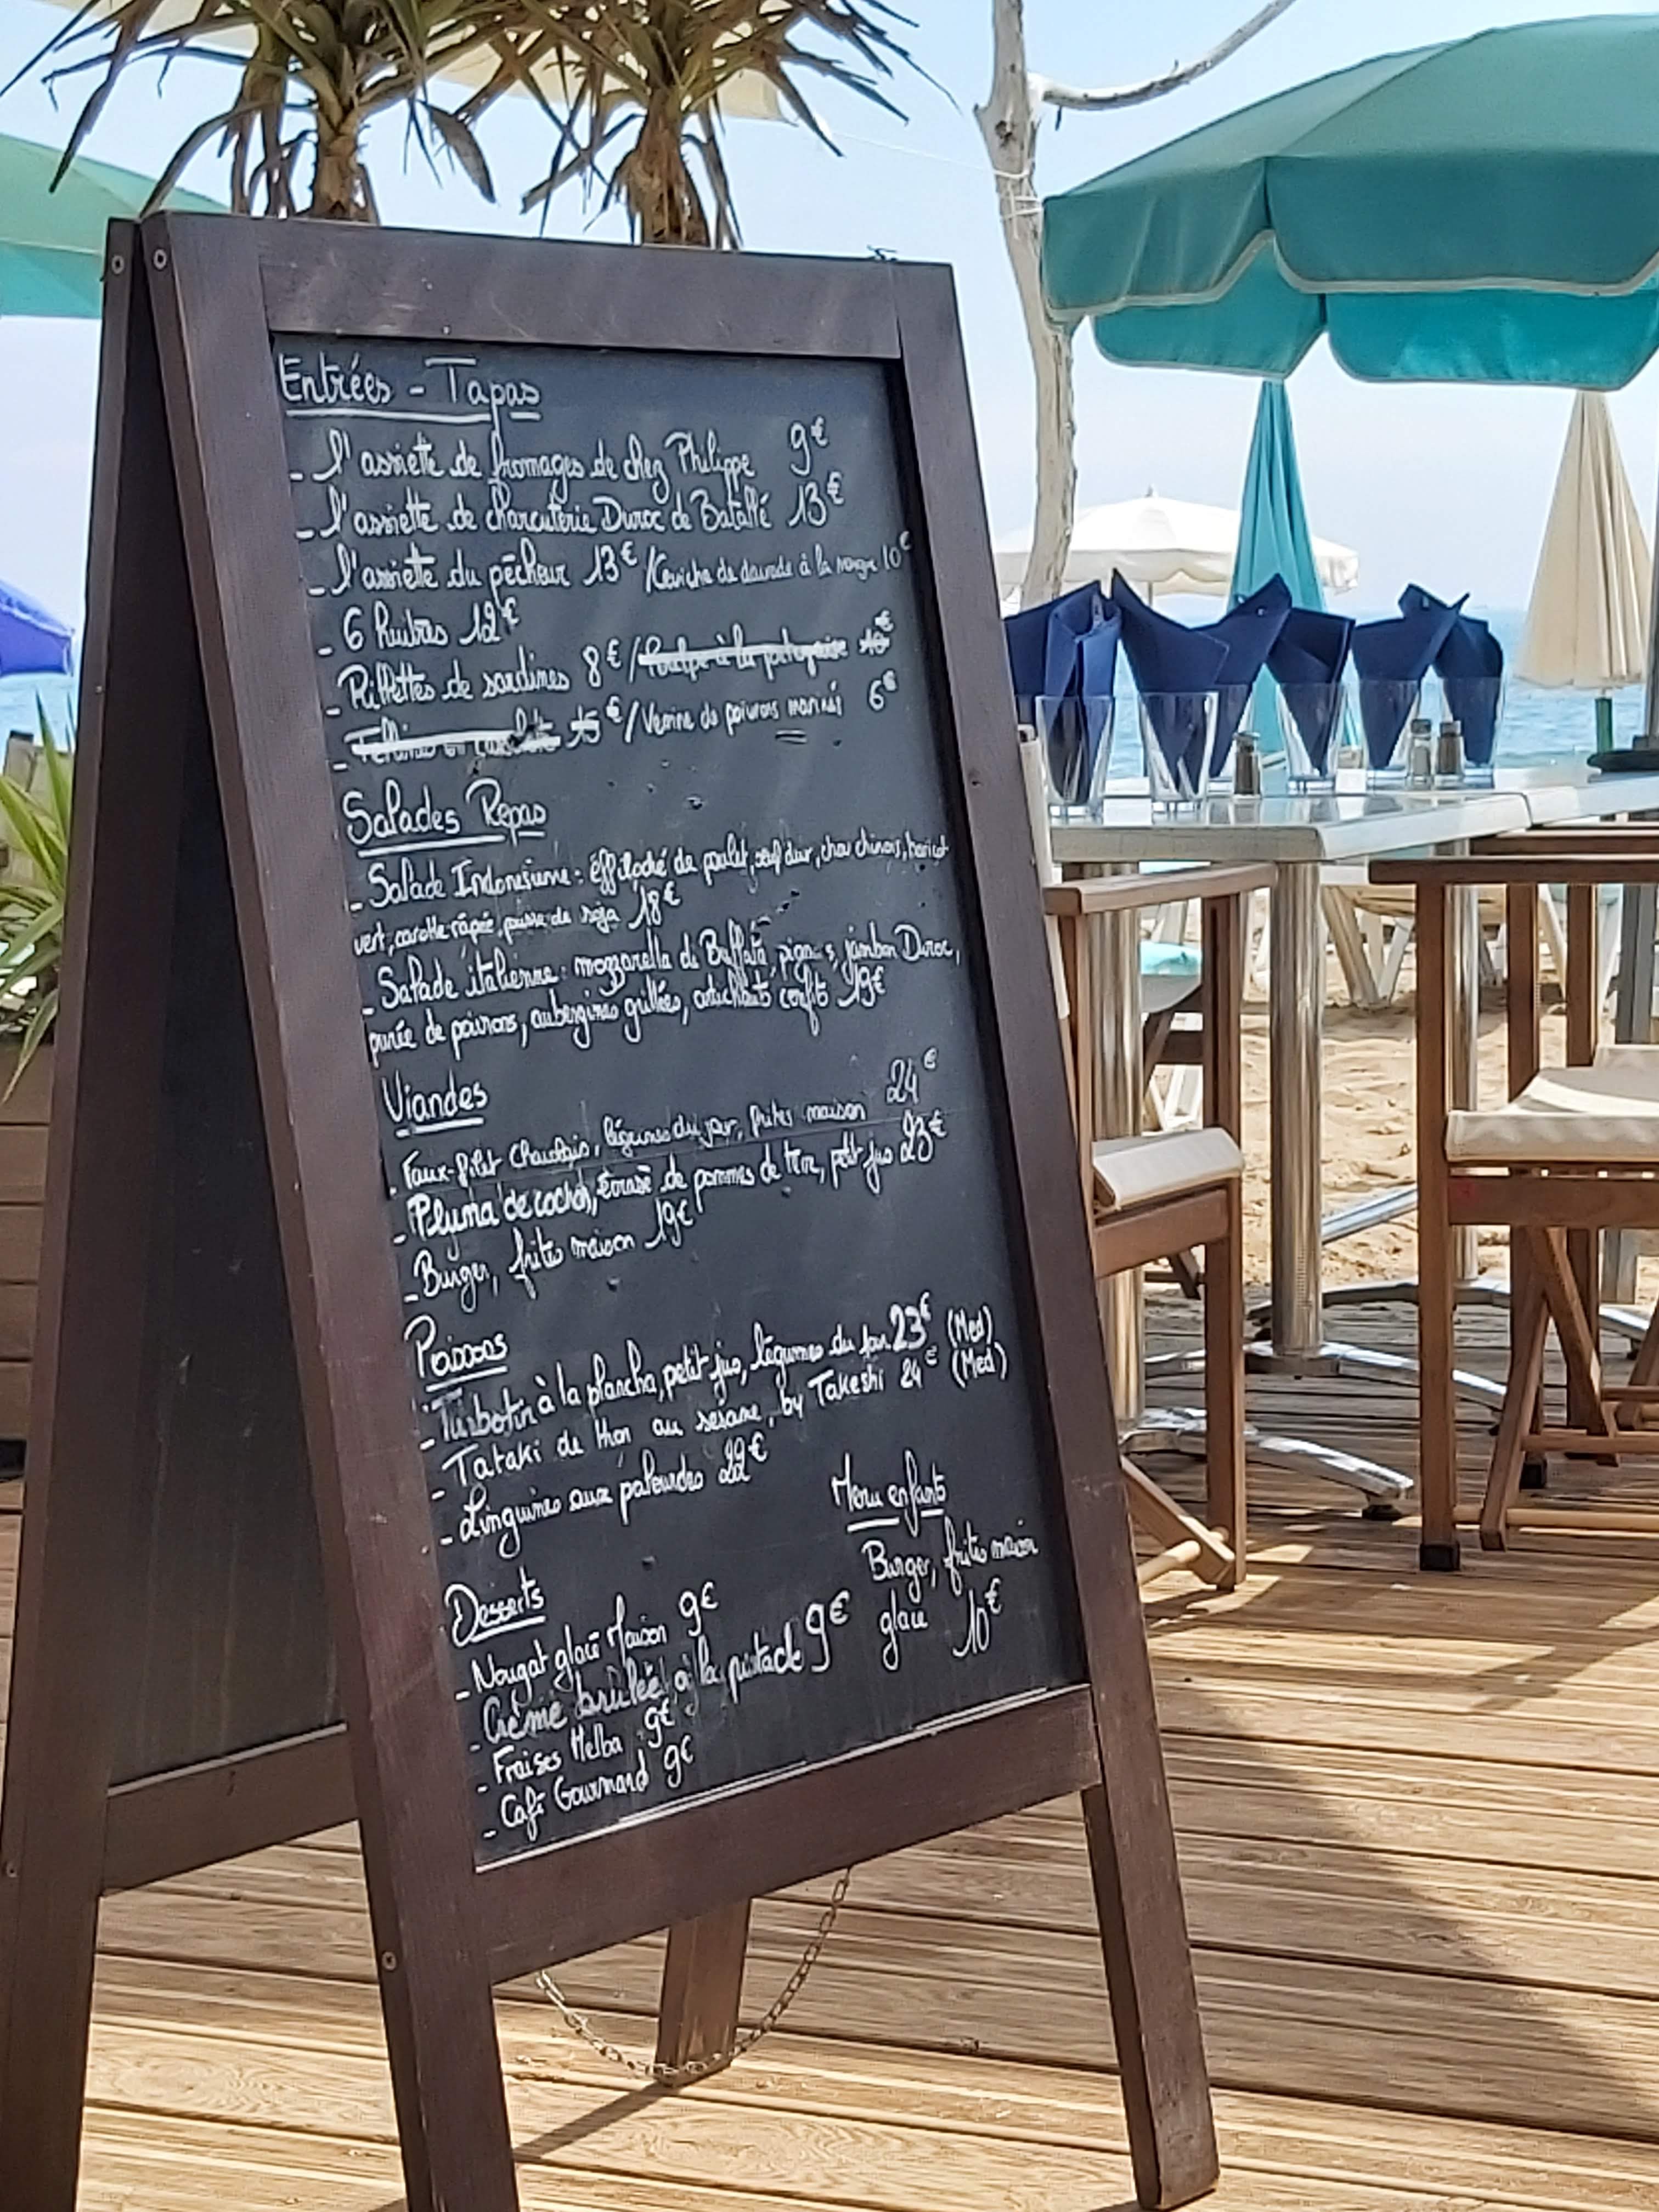 Entrées - Tapas
- l'assiette de fromages de chez Philippe 9€
- l'assiette de charcuterie Duroc de Batallé 13€
- l'assiette du pêcheur 13€ / Ceviche de daurade à la mangue 10€
- 6 huitres 12€
- Rillettes de sardines 8€ / Poulpe à la portugaise 10€
- Tellines en 15€ / Verrine de poivrons marinés 6€
Salades Repas
- Salade Indonesienne : éffiloché de poulet, oeuf dur, chou chinois, haricot
vert, carotte râpée, pousse de soja 18€
- Salade italienne : mozzarella di Buffala, jambon Duroc,
purée de poivrons, aubergines grillées, artichauts confits 19€
Viandes
- Faux-filet Charolais, légumes du jour, frites maison 24€
- Pluma de cochon, Écrasé de pommes de terre, petit jus 23€
- Burger, frites maison 19€
Poissons
- Turbotin à la plancha, petit jus, légumes du jour 23€ (Med)
- Tataki de thon au sésame, by Takeshi 24€ (Med)
- Linguines aux palourdes 22€
Desserts
- Nougat glacé Maison 9€
- Crème brulée à la pistache 9€
- Fraises Melba 9€
- Café Gourmand 9€
Menu enfants
Burger, frites maison
glace 10€